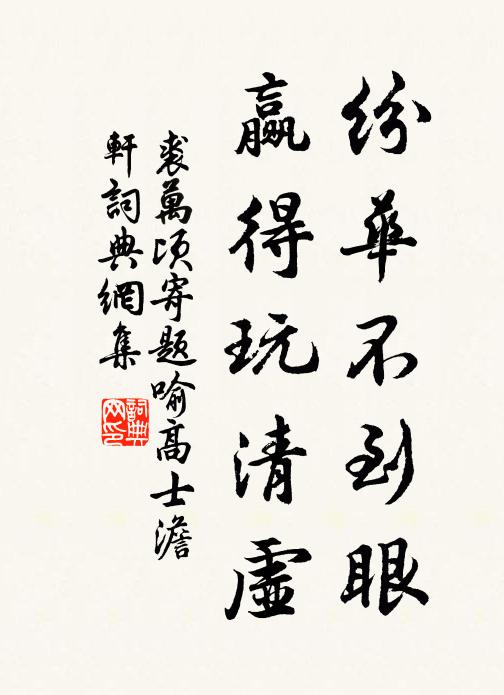 紛華不到眼
贏得玩清虛
裘萬頃寄題喻高士澹
軒詞典網集
詞典
网印